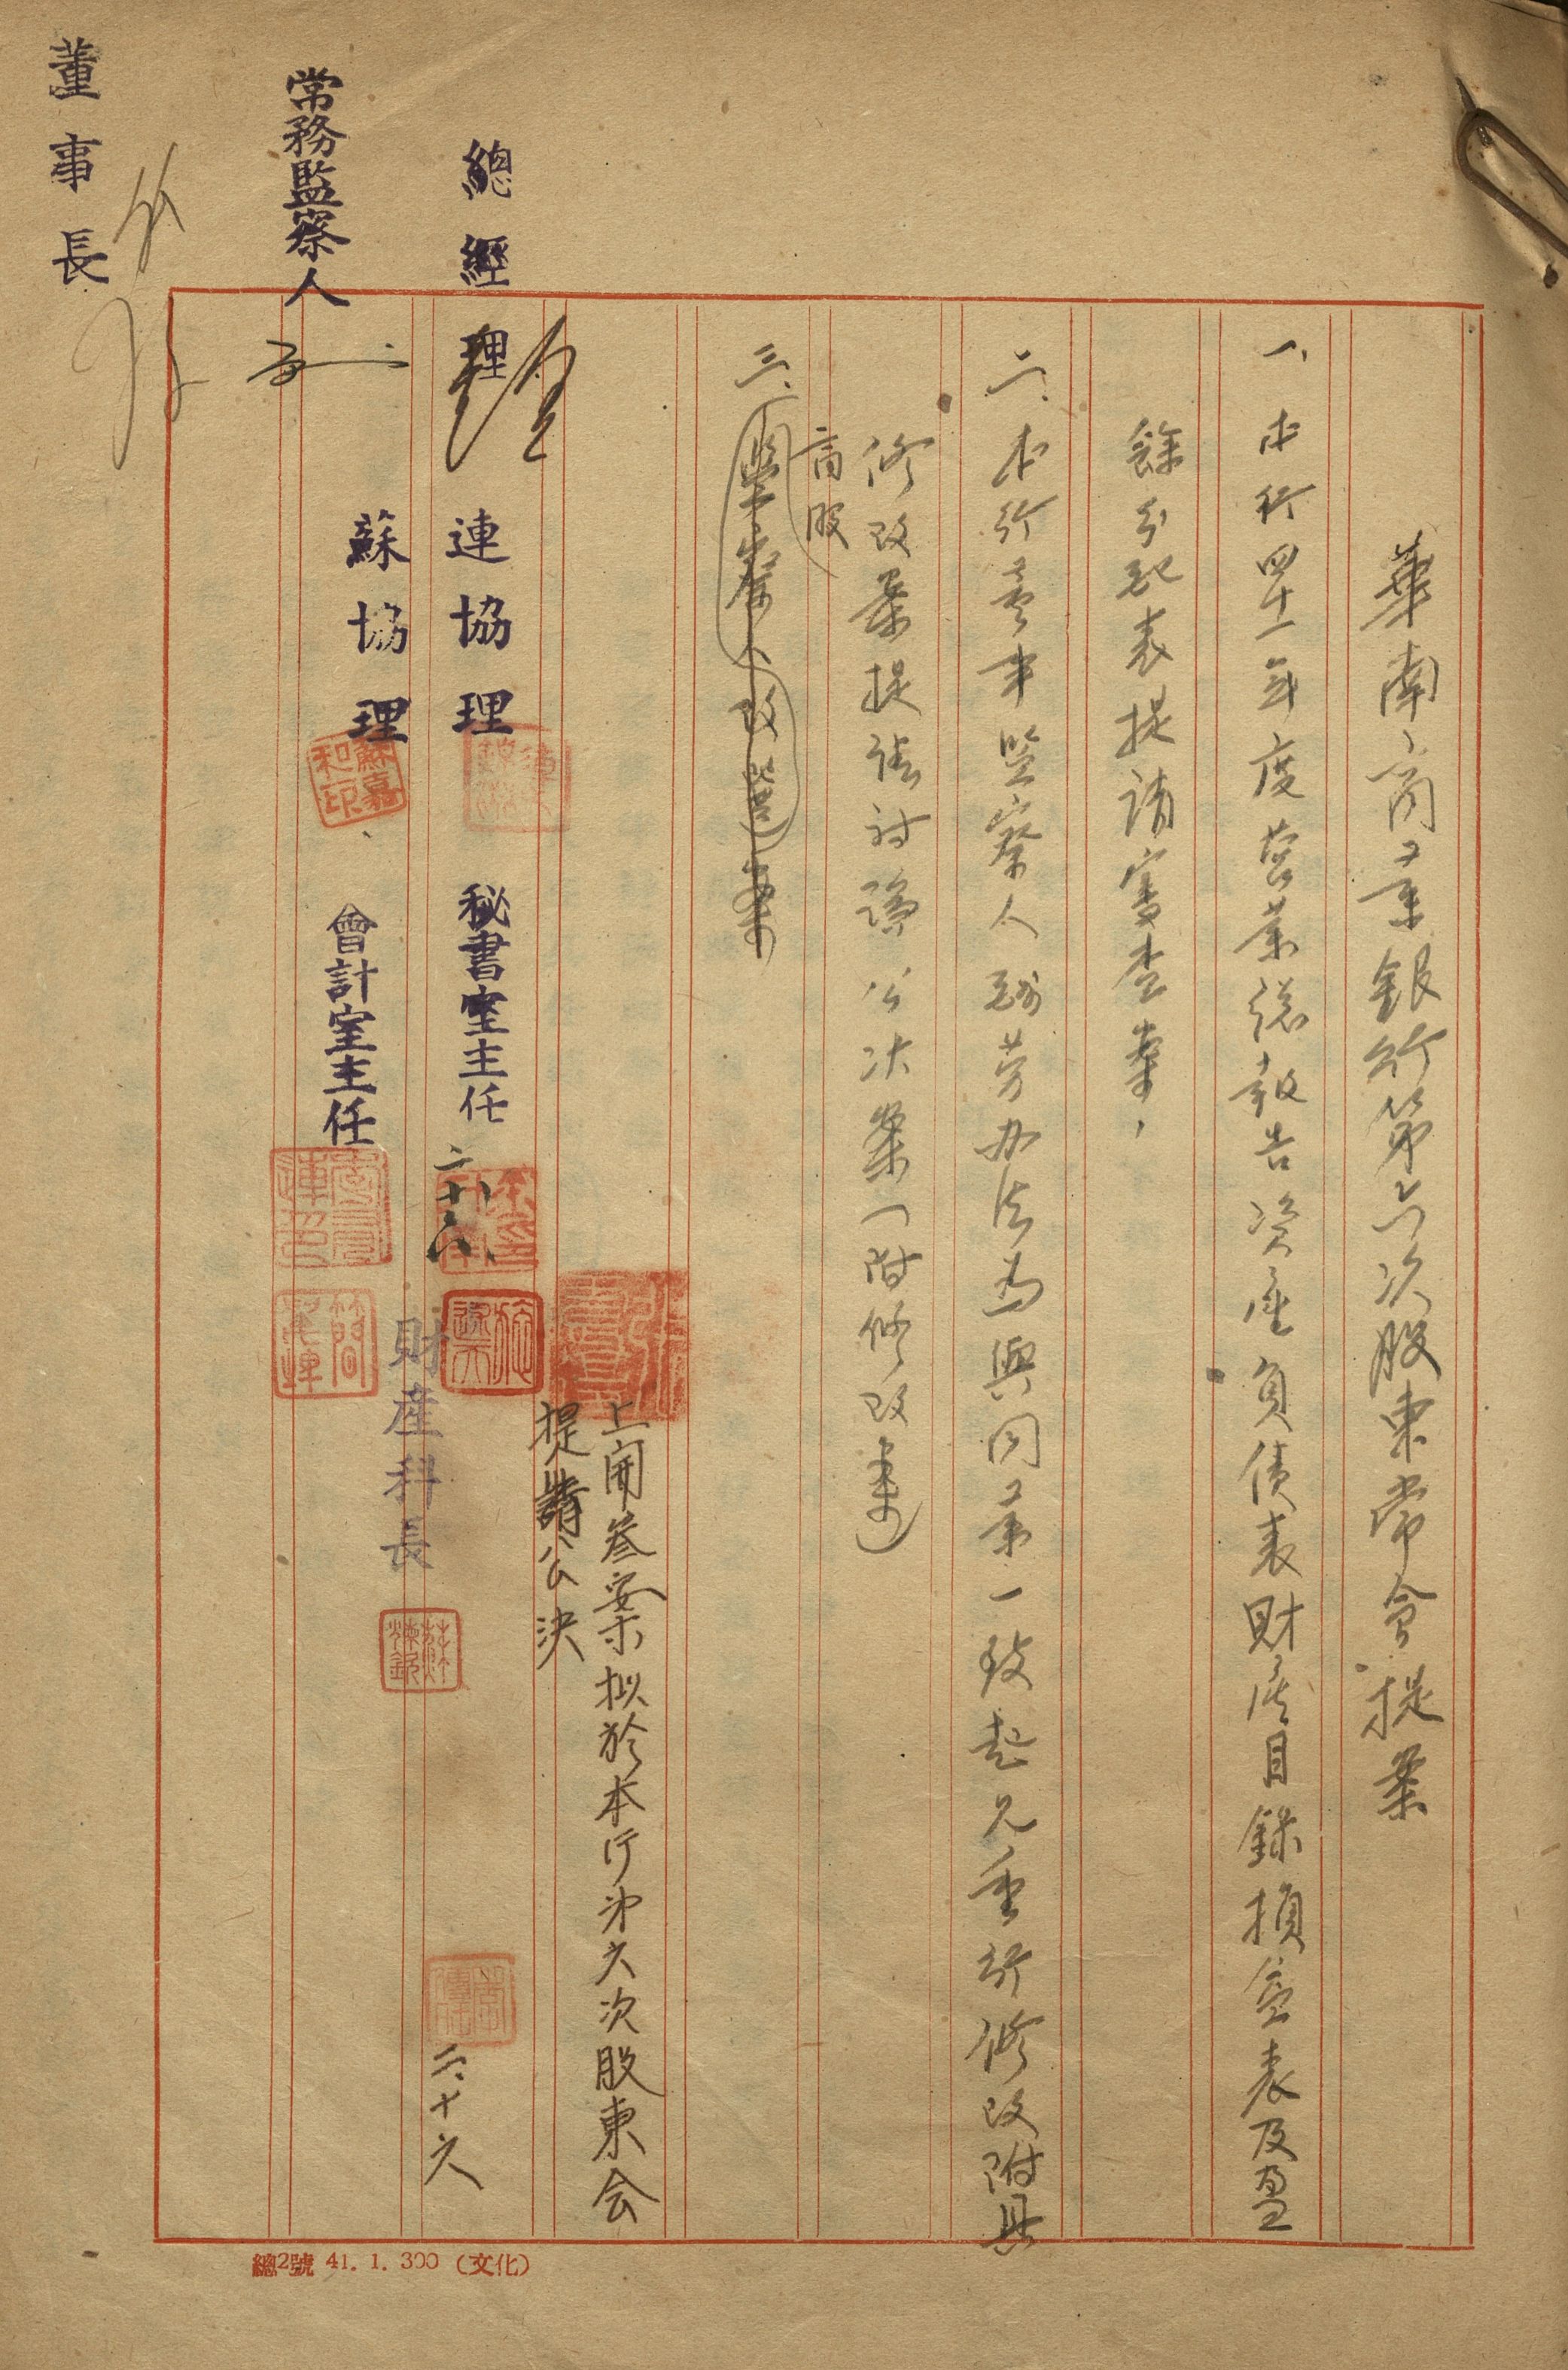 華南商業銀行第六次股東常會提案
一、本行四十一年度營業總報告資產負債表財產目錄損益表及盈
餘分配表提請審查案
二、本行董事監察人酬劳办法為與同業一致起見重行修改附具
修改案提請討論公決案（附修改案）
商股
三、監察人改選案
上開叁案拟於本行第六次股東会
提請公決
總經理
連協理
秘書室主任
二十六
二、十六
蘇協理
蘇嘉和印
會計室主任
財產科長
常務監察人
董事長
總2號 41. 1. 300 (文化)